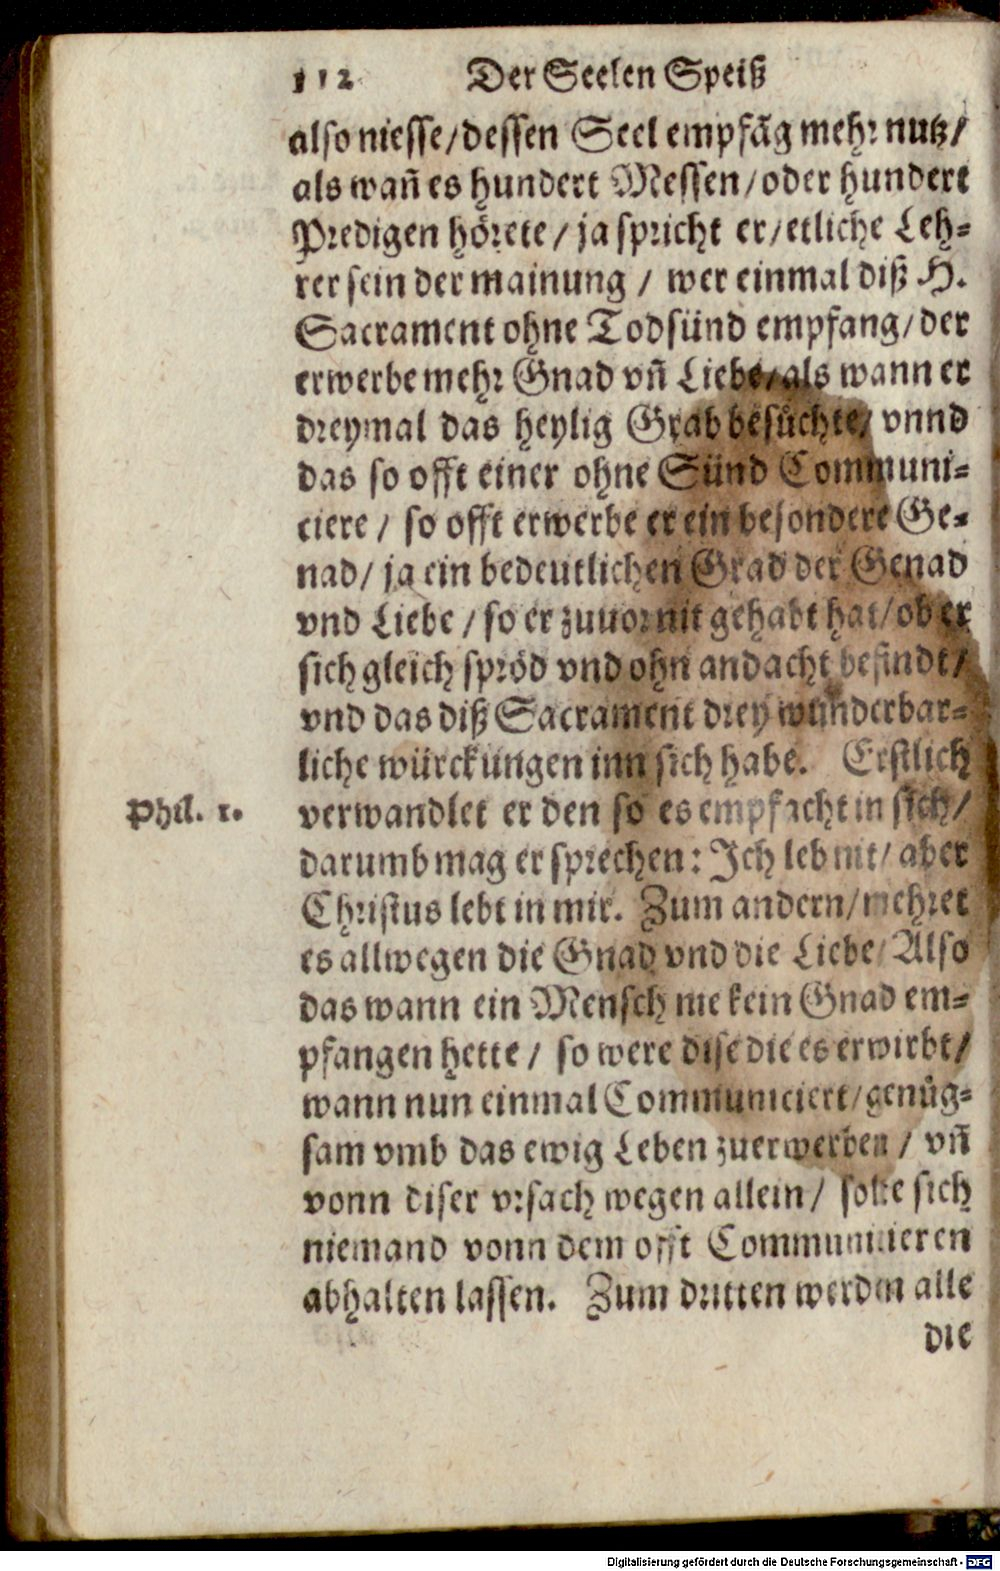 112 Der Seelen Speiß
also niesse/dessen Seel empfāg mehr nutz/
als wañ es hundert Messen/oder hundert
Predigen hörete/ja spricht er/etliche Leh-
rer sein der mainung/ wer einmal diß H.
Sacrament ohne Todsünd empfang/der
erwerbe mehr Gnad vñ Liebe/als wann er
dreymal das heylig Grab besůchte/ vnnd
das so offt einer ohne Sünd Communi-
ciere/ so offt erwerbe er ein besondere Ge-
nad/ ja ein bedeutlichen Grad der Genad
vnd Liebe/so er zuuor nit gehabt hat/ob er
sich gleich spröd vnd ohn andacht befindt/
vnd das diß Sacrament drey wunderbar-
liche würckungen inn sich habe. Erstlich
Phil. 1. verwandlet er den so es empfacht in sich/
darumb mag er sprechen: Ich leb nit/aber
Christus lebt in mir. Zum andern/mehret
es allwegen die Gnad vnd die Liebe/Also
das wann ein Mensch nie kein Gnad em-
pfangen hette/ so were dise die es erwirbt/
wann nun einmal Communiciert/genůg-
sam vmb das ewig Leben zuerwerben/ vñ
vonn diser vrsach wegen allein/ solte sich
niemand vonn dem offt Communicieren
abhalten lassen. Zum dritten werden alle
die
Digitalisierung gefördert durch die Deutsche Forschungsgemeinschaft - DFG